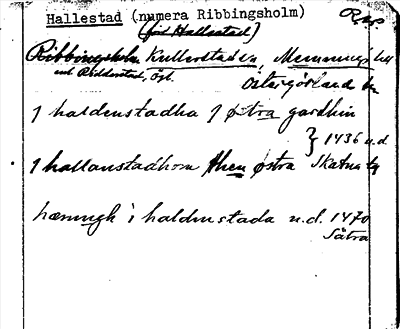 Hallestad (numera Ribbingsholm)
(förr Hallestad)
Ribbingsholm Kullerstaden, Memmings hd
Östergötland
J haldenstadha J østra gardhin
} 1436 u.d.
J hallanstadhom then østra Skatna
hæmingh i haldnustada u.d. 1470
Sätra